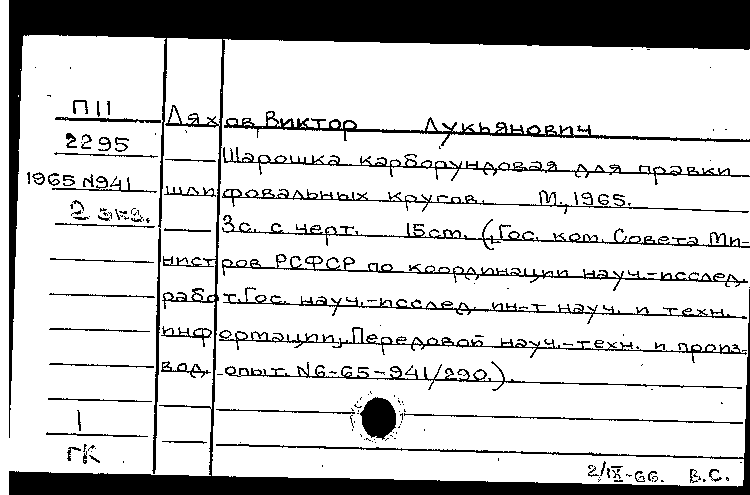 П11
Ляхов, Виктор Лукьянович
2295
Шарошка карборундовая для правки
1965 N941
шлифовальных кругов. М., 1965.
2 экз.
3с. с черт. 15см. (Гос. ком. Совета Ми-
нистров РСФСР по координации науч.-исслед.
работ. Гос. науч.-исслед. ин-т науч. и техн.
информации. Передовой науч.-техн. и произ-
вод. опыт. N6-65-941/290.).
1
ГК
2/IX-66. В.С.